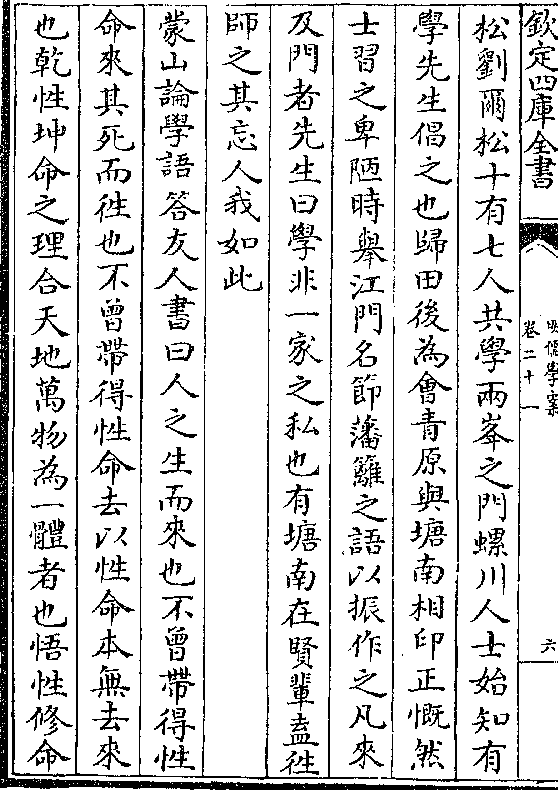 欽定四庫全書
明儒學案
卷二十一
六
松劉爾松十有七人共學兩峯之門螺川人士始知有
學先生倡之也歸田後為會青原與塘南相印正慨然
士習之卑陋時舉江門名節藩籬之語以振作之凡來
及門者先生曰學非一家之私也有塘南在賢輩盍徃
師之其忘人我如此
蒙山論學語答友人書曰人之生而來也不曾帶得性
命來其死而徃也不曾帶得性命去以性命本無去來
也乾性坤命之理合天地萬物為一體者也悟性修命